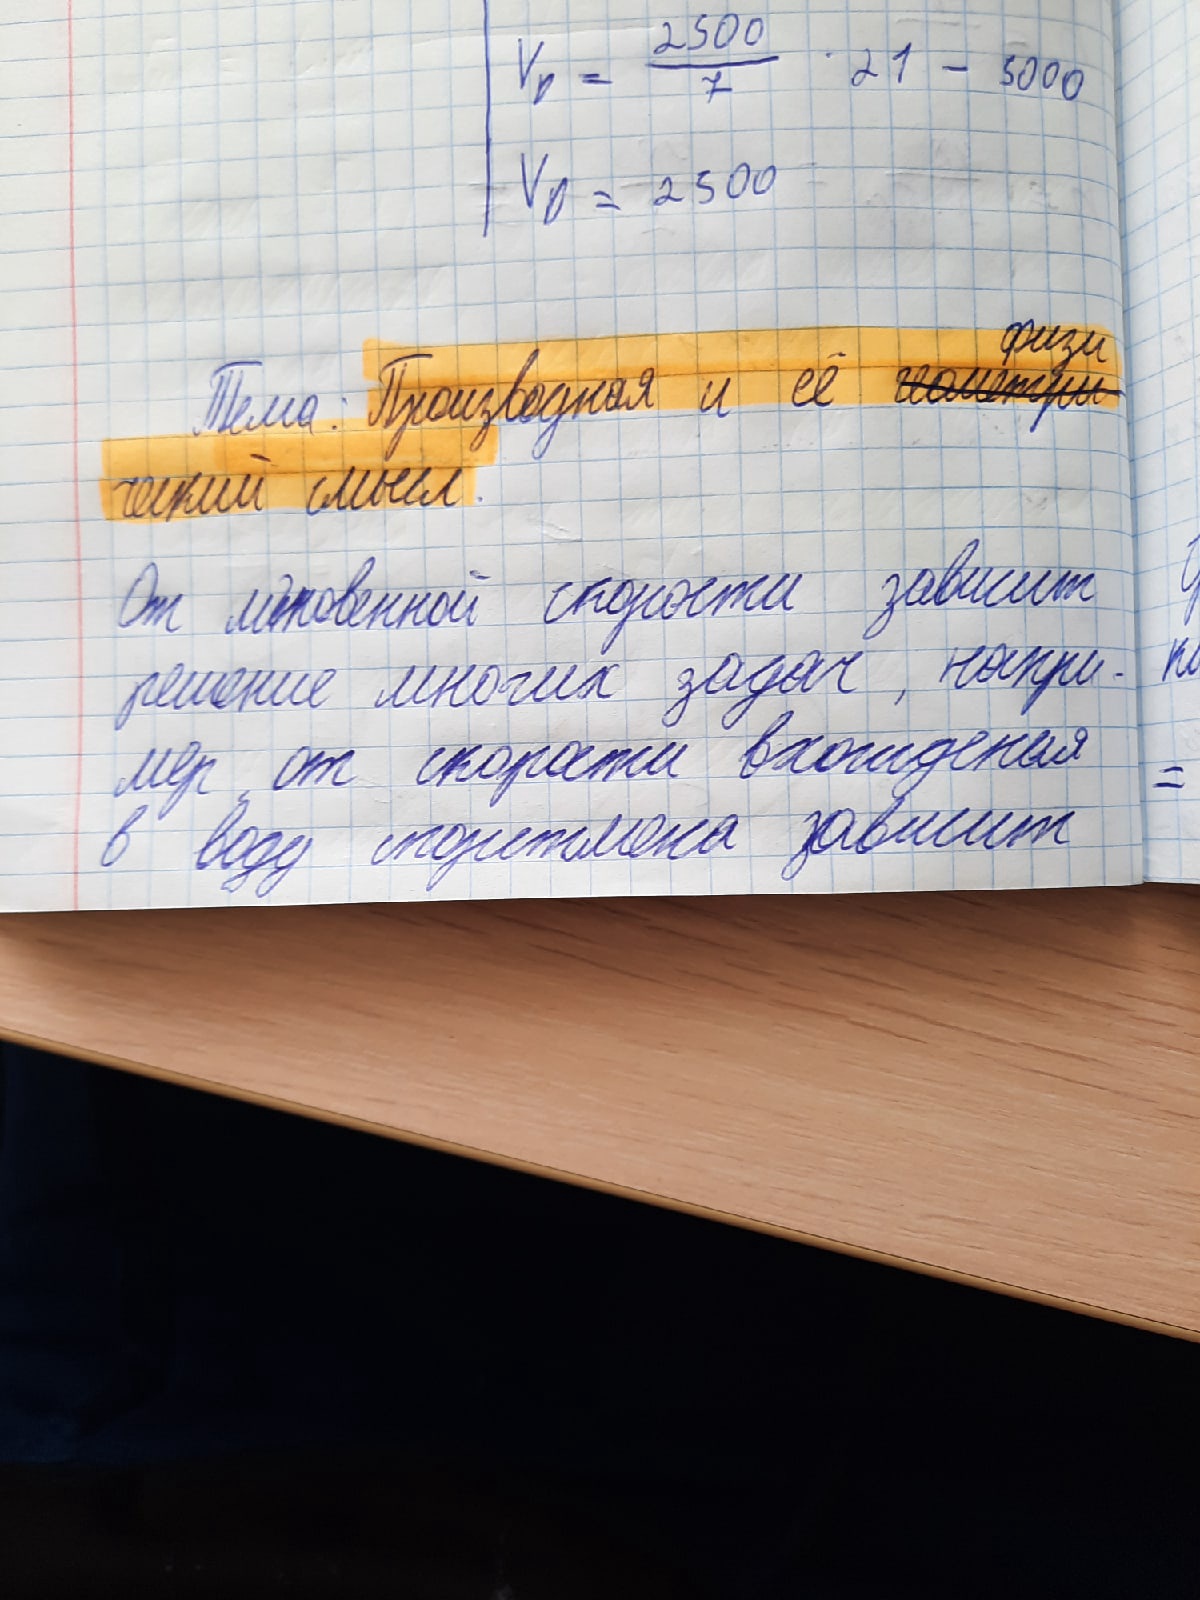 V_p = 2500/7 · 21 - 5000
V_p = 2500
физи
Тема: Производная и её геометри
ческий смысл.
От мгновенной скорости зависит
решение многих задач, напри-
мер, от скорости вхождения
в воду спортсмена зависит
=